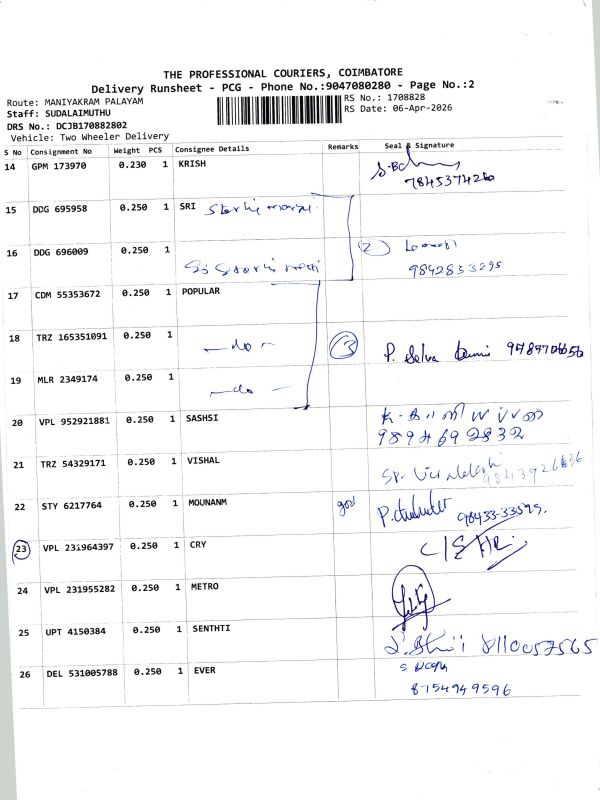 THE PROFESSIONAL COURIERS, COIMBATORE
Delivery Runsheet - PCG - Phone No.:9047080280 - Page No.:2
Route: MANIYAKRAM PALAYAM
Staff: SUDALAIMUTHU
DRS No.: DCJB170882802
Vehicle: Two Wheeler Delivery
RS No.: 1708828
RS Date: 06-Apr-2026
S No Consignment No Weight PCS Consignee Details Remarks Seal & Signature
14 GPM 173970 0.230 1 KRISH
7845374260
15 DDG 695958 0.250 1 SRI
16 DDG 696009 0.250 1 (2)
9842833295
17 CDM 55353672 0.250 1 POPULAR
18 TRZ 165351091 0.250 1 —do— (3) P. Selva
19 MLR 2349174 0.250 1 —do—
20 VPL 952921881 0.250 1 SASHSI
9894692832
21 TRZ 54329171 0.250 1 VISHAL
22 STY 6217764 0.250 1 MOUNANM
98433-33595.
23 VPL 231964397 0.250 1 CRY
24 VPL 231955282 0.250 1 METRO
25 UPT 4150384 0.250 1 SENTHTI
8110057565
26 DEL 531005788 0.250 1 EVER
8754949596